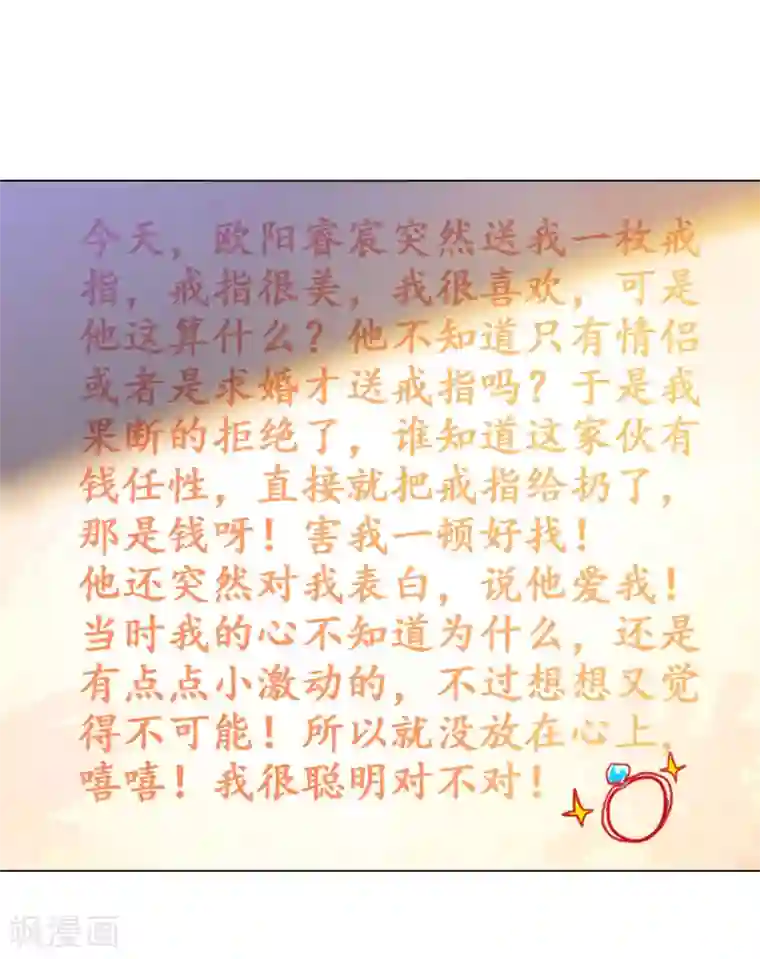 今天，欧阳睿宸突然送我一枚戒
指，戒指很美，我很喜欢，可是
他这算什么？他不知道只有情侣
或者是求婚才送戒指吗？于是我
果断的拒绝了，谁知道这家伙有
钱任性，直接就把戒指给扔了，
那是钱呀！害我一顿好找！
他还突然对我表白，说他爱我！
当时我的心不知道为什么，还是
有点点小激动的，不过想想又觉
得不可能！所以就没放在心上，
嘻嘻！我很聪明对不对！
飒漫画